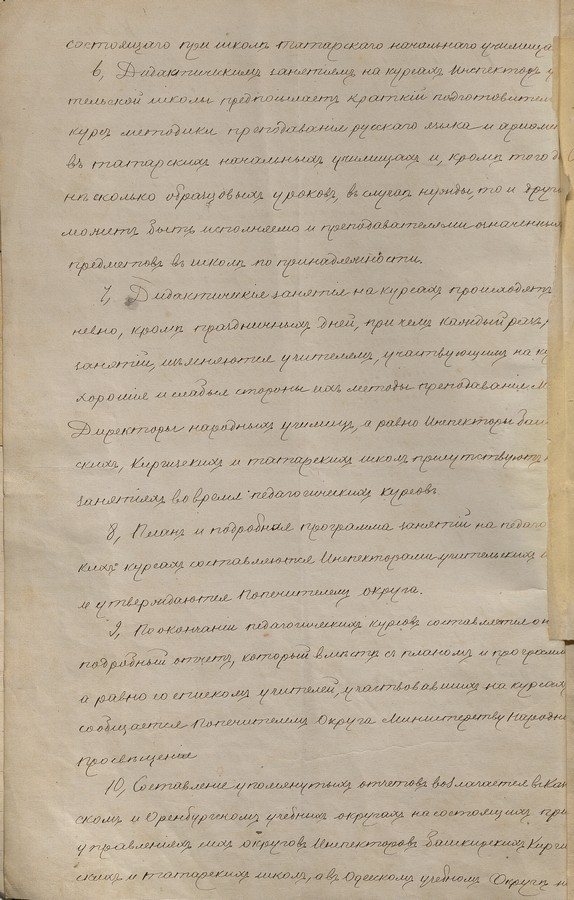 состоящаго при школѣ татарскаго начальнаго училища
6, Дидактическимъ занятіямъ на курсахъ Инспекторъ у
тельской школы предпосылаетъ краткій подготовител
курсъ методики преподаванія русскаго языка и ариѳме
въ татарскихъ начальныхъ училищахъ и, кромѣ того да
нѣсколько образцовыхъ уроковъ, въ случаѣ нужды, то и друг
можетъ быть исполняемо и преподавателями означенныхъ
предметовъ въ школѣ по принадлежности.
7, Дидактическія занятія на курсахъ происходятъ
невно, кромѣ праздничныхъ дней, при чемъ каждый разъ,
занятій, изъясняются учителямъ, участвующимъ на ку
хорошія и слабыя стороны ихъ методы преподаванія.
Директоры народныхъ училищъ, а равно Инспекторы Баш
скихъ, Киргизскихъ и татарскихъ школъ присутствуютъ
занятіяхъ во время педагогическихъ курсовъ.
8, Планъ и подробная программа занятій на педаго
кихъ курсахъ составляются Инспекторами учительскихъ
и утверждаются Попечителемъ округа.
9, По окончаніи педагогическихъ курсовъ составляется
подробный отчетъ, который вмѣстѣ съ планомъ и программ
а равно со спискомъ учителей, участвовавшихъ на курсахъ
сообщается Попечителемъ Округа Министерству Народна
просвѣщенія
10, Составленіе упомянутыхъ отчетовъ возлагается въ Каз
скомъ и Оренбургскомъ учебныхъ округахъ на состоящихъ при
управленіяхъ сихъ округовъ Инспекторовъ Башкирскихъ Кирги
скихъ и татарскихъ школъ, а въ Одесскомъ учебномъ Округѣ на